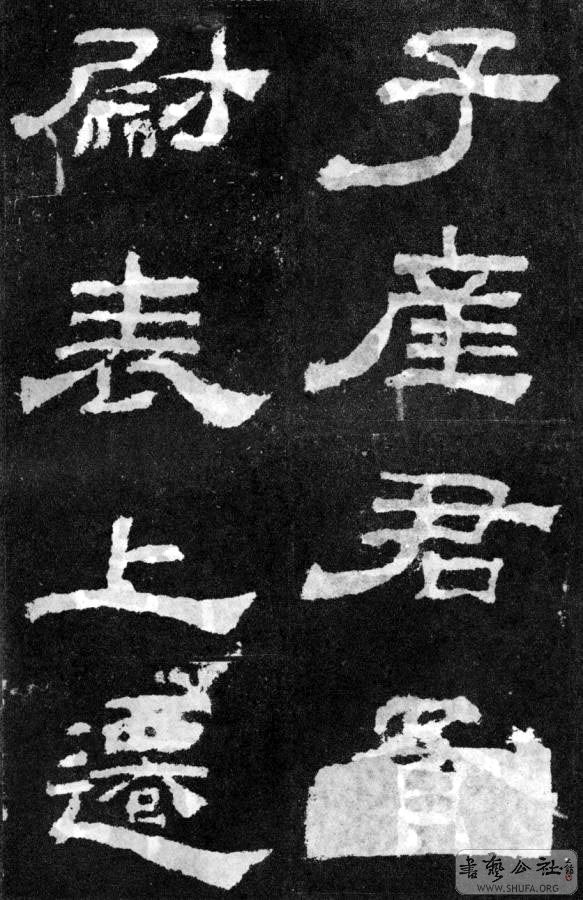 子產君
尉表上遷
書藝公社
WWW.SHUFA.ORG